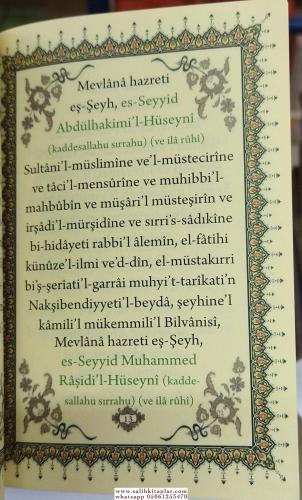 Mevlânâ hazreti
eş-Şeyh, es-Seyyid
Abdülhakimi’l-Hüseynî
(kaddesallahu sırrahu) (ve ilâ rûhî)
Sultâni’l-müslimîne ve’l-müstecirîne
ve tâci’l-mensûrîne ve muhibbi’l-
mahbûbîn ve müşâri’l müsteşirîn ve
irşâdi’l-mürşidîne ve sırri’s-sâdıkîne
bi-hidâyeti rabbi’l âlemîn, el-fâtihi
künûze’l-ilmi ve’d-dîn, el-müstakırri
bi’ş-şeriati’l-garrâi muhyi’t-tarîkati’n
Nakşibendiyyeti’l-beydâ, şeyhine’l
kâmili’l mükemmili’l Bilvânisî,
Mevlânâ hazreti eş-Şeyh,
es-Seyyid Muhammed
Râşidi’l-Hüseynî (kadde-
sallahu sırrahu) (ve ilâ rûhî)
13
www.salihkitaplar.com
whatsapp 05061253470